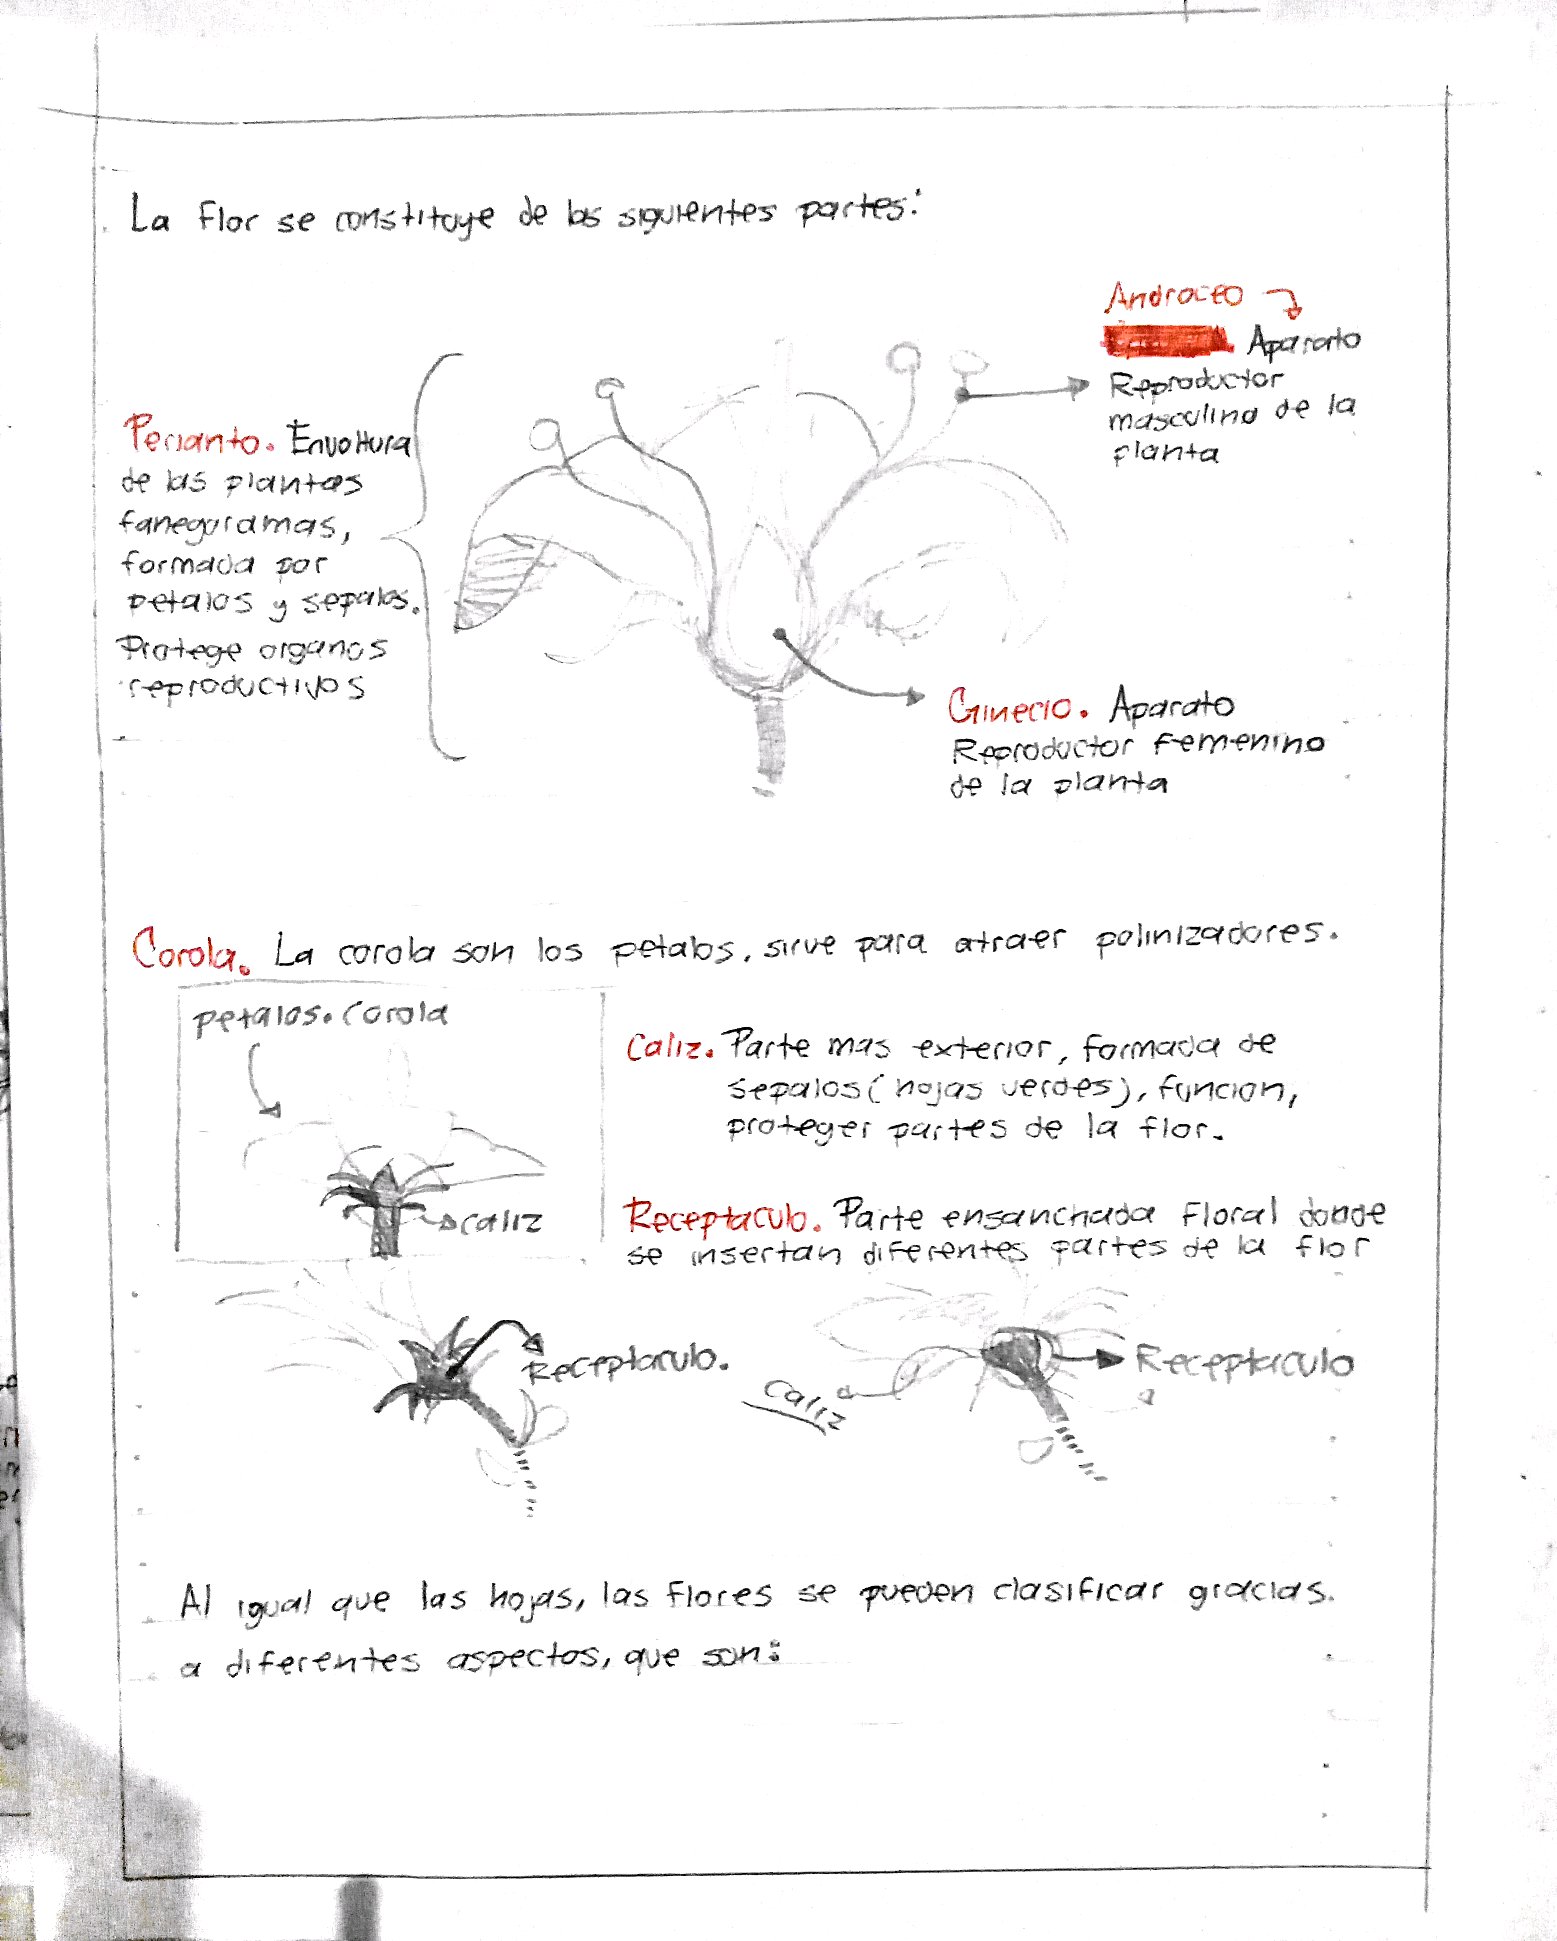 La Flor se constituye de las siguientes partes:
Androceo
Aparato
Reproductor
masculino de la
planta
Perianto. Envoltura
de las plantas
fanegoramas,
formada por
petalos y sepalos.
Protege organos
reproductivos
Ginecio. Aparato
Reproductor Femenino
de la planta
Corola. La corola son los petalos. sirve para atraer polinizadores.
petalos. Corola
caliz
Caliz. Parte mas exterior, formada de
sepalos (hojas verdes), funcion,
proteger partes de la flor.
Receptaculo. Parte ensanchada Floral donde
se insertan diferentes partes de la flor
Receptaculo.
Caliz
Receptaculo
Al igual que las hojas, las flores se pueden clasificar gracias.
a diferentes aspectos, que son: